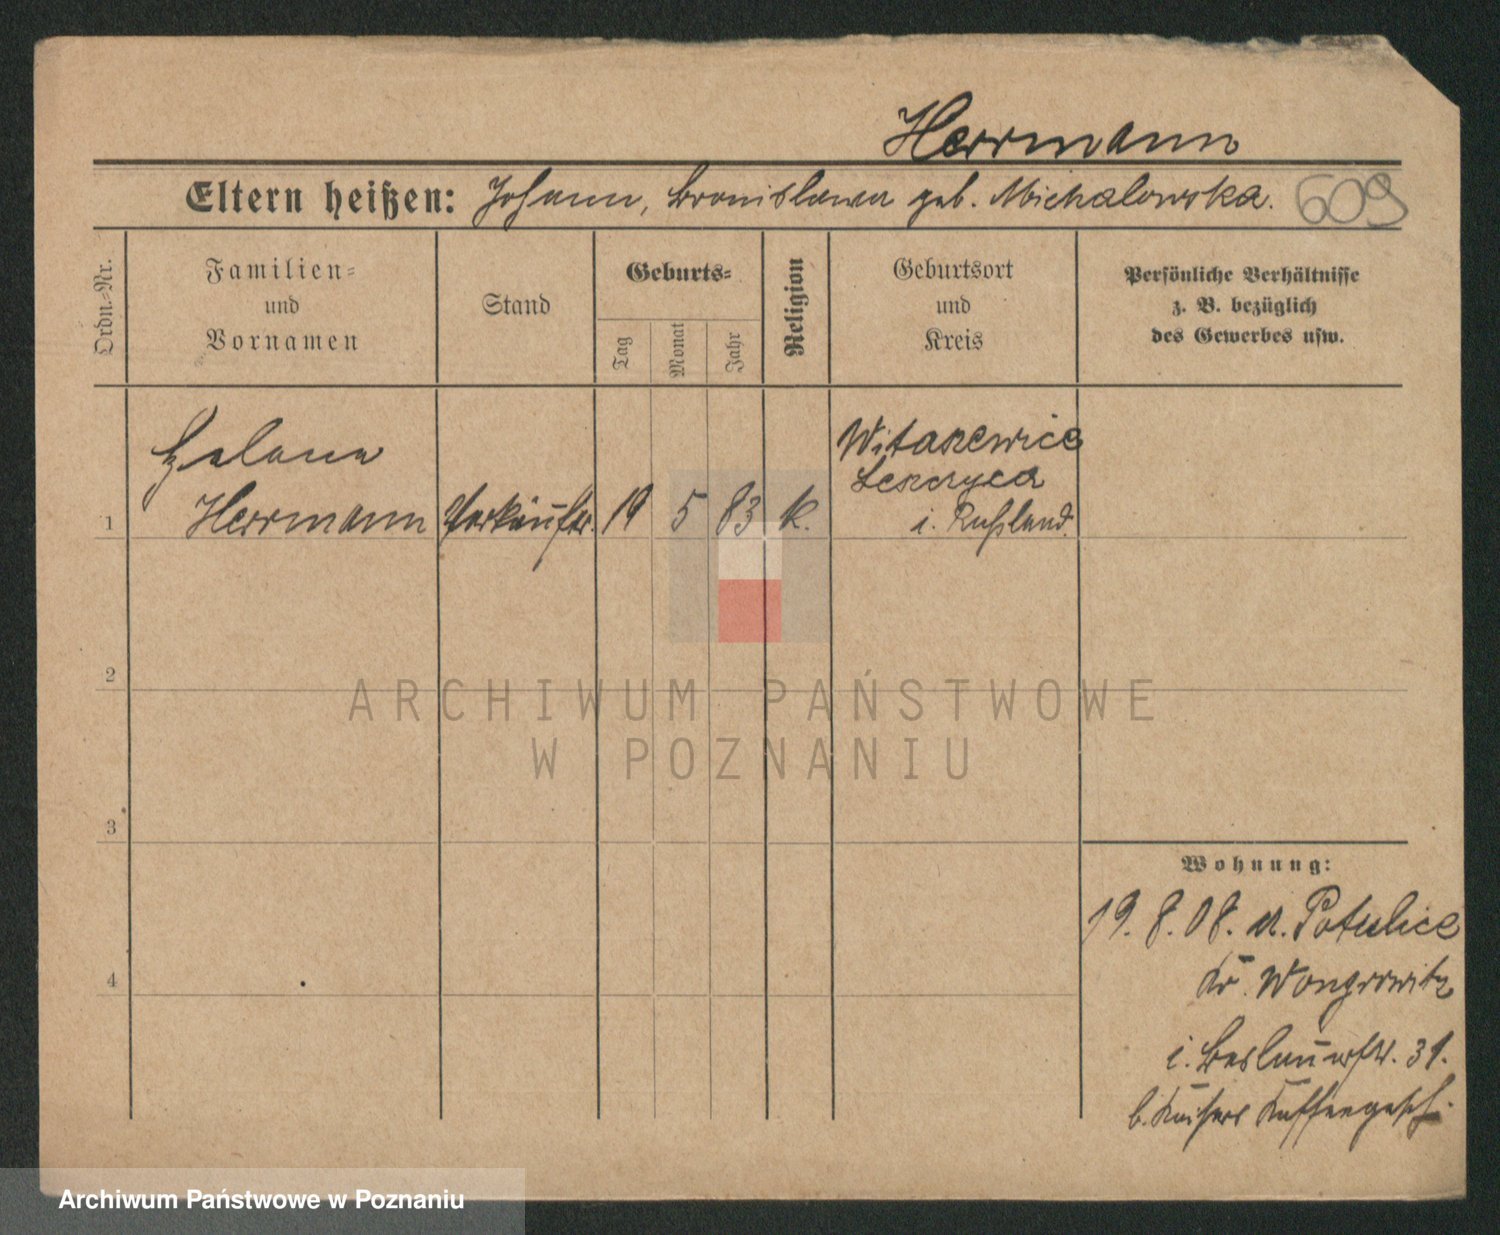 Herrmann
Eltern heißen: Johann, Bronislawa geb. Michalowska. 609
Ordn.-Nr.
Familien-
und
Vornamen
Stand
Geburts-
Tag
Monat
Jahr
Religion
Geburtsort
und
Kreis
Persönliche Verhältnisse
z. B. bezüglich
des Gewerbes usw.
Helene
Witaszewice
Leszczyca
1 Herrmann Verkäuft. 19 5 83 k. i. Rußland.
2
3
4
ARCHIWUM PAŃSTWOWE
W POZNANIU
Wohnung:
19. 8. 08. a. Potulice
Kr. Wongrowitz
i. Breslauerstr. 31.
b. Kaisers Kaffeegesch.
Archiwum Państwowe w Poznaniu